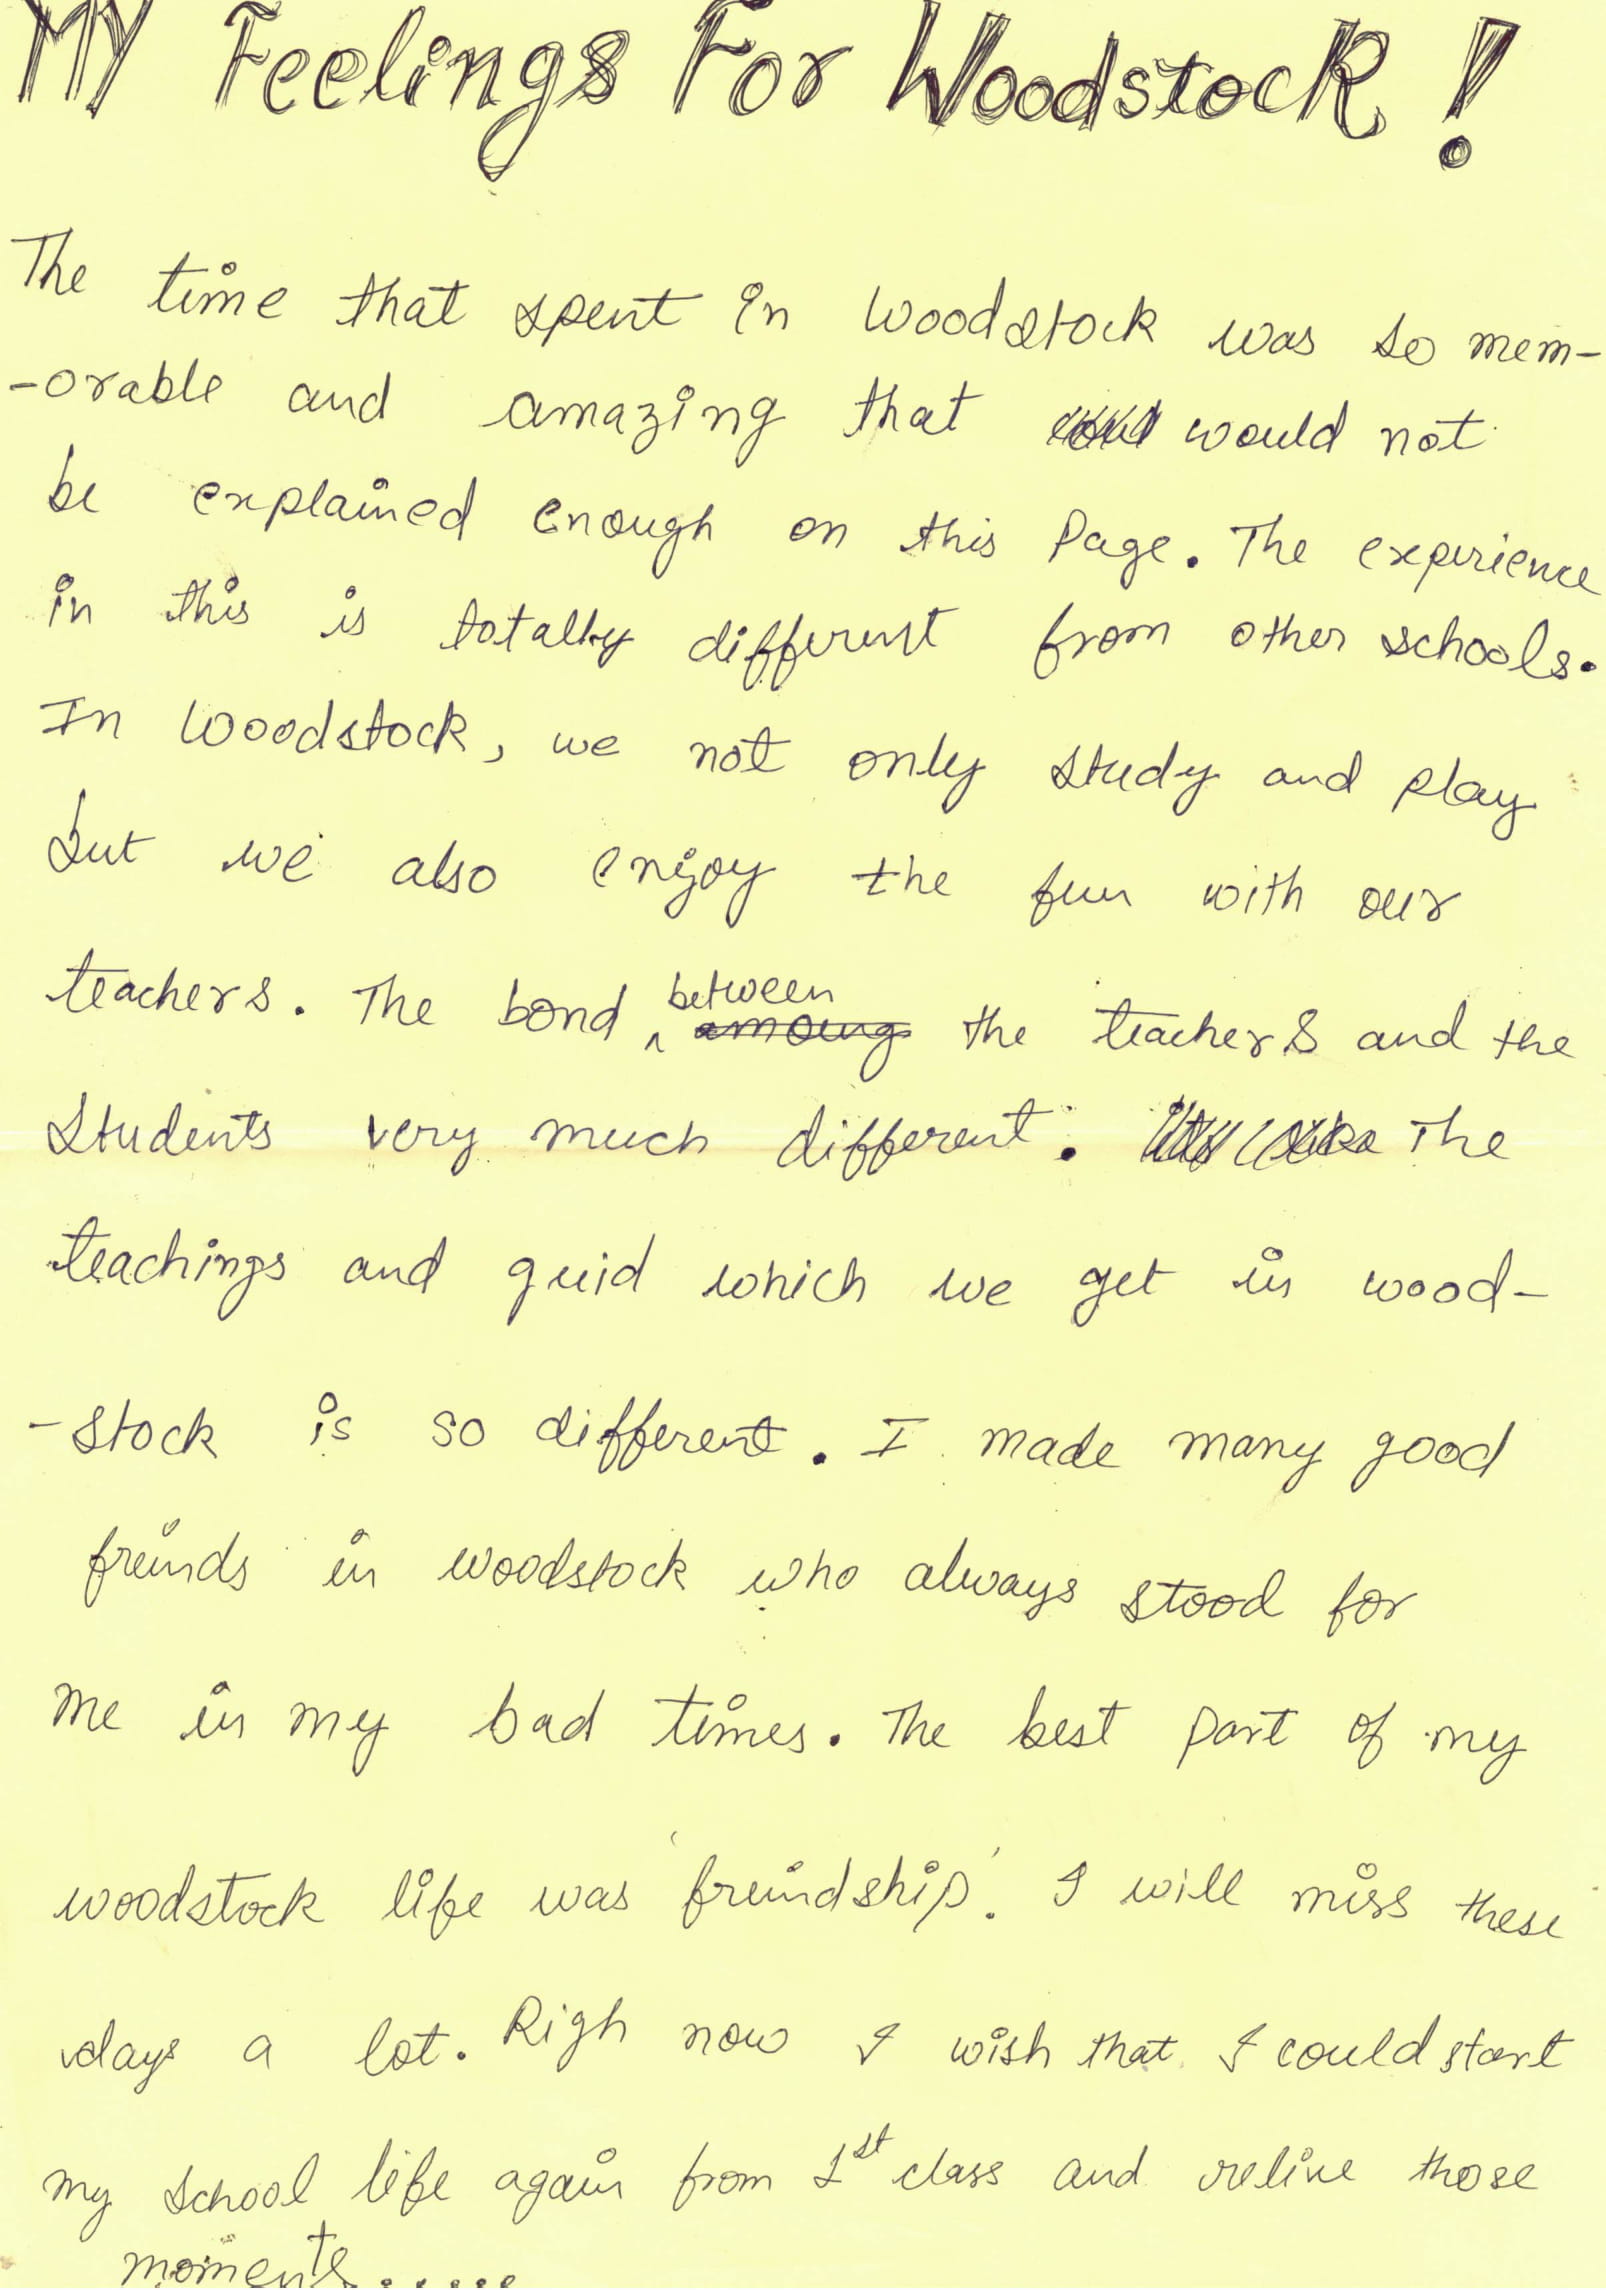 MY Feelings For Woodstock !
The time that spent in Woodstock was so mem-
-orable and amazing that would not
be explained enough on this Page. The experience
in this is totally different from other schools.
In Woodstock, we not only study and play
but we also enjoy the fun with our
teachers. The bond between among the teachers and the
students very much different. The
teachings and guid which we get in wood-
-stock is so different. I made many good
freinds in woodstock who always stood for
me in my bad times. The best part of my
woodstock life was 'freindship'. I will miss these
days a lot. Righ now I wish that I could start
my school life again from 1st class and relive those
moments......